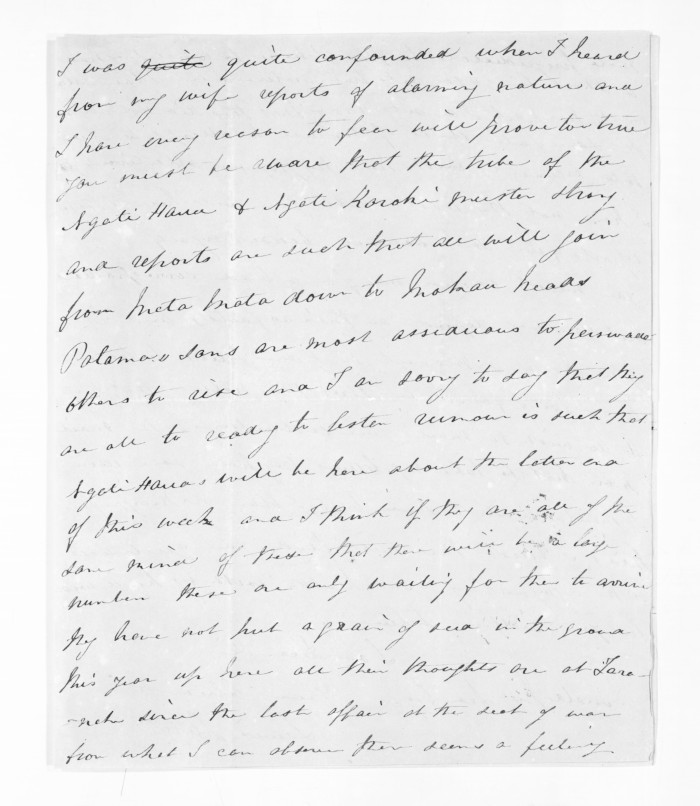 I was quite quite confounded when I heard
from my wife reports of alarming nature and
I have every reason to fear will prove to true
you must be aware that the tribe of the
Ngati Haua & Ngati Koroki muster strong
and reports are such that all will join
from Mata Mata down to Mokau heads
sons are most assiduous to persuade
others to rise and I am sorry to say that they
are all to ready to listen rumour is such that
Ngati Hauas will be here about the latter end
of this week and I think if they are all of the
same mind of these that there will be a large
number these are only waiting for them to arrive
they have not put a grain of seed in the ground
this year up here all their thoughts are at Tara-
-naki since the last affair at the seat of war
from what I can observe there seems a feeling